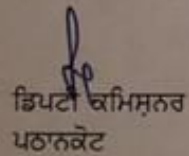 ਡਿਪਟੀ ਕਮਿਸ਼ਨਰ
ਪਠਾਨਕੋਟ